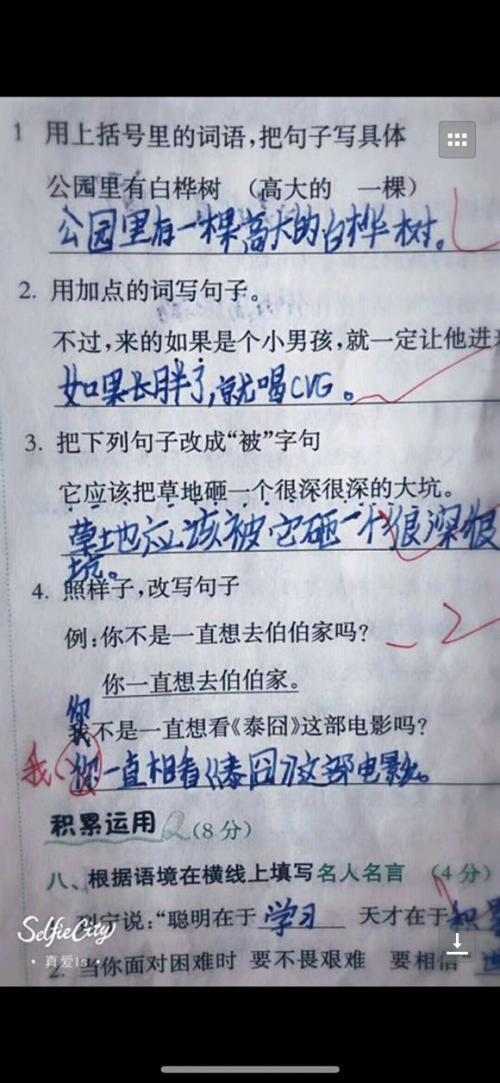 1 用上括号里的词语,把句子写具体
公园里有白桦树 (高大的 一棵)
公园里有一棵高大的白桦树。
2. 用加点的词写句子。
不过,来的如果是个小男孩,就一定让他进
如果长胖了,就喝CVG。
3. 把下列句子改成“被”字句
它应该把草地砸一个很深很深的大坑。
草地应该被它砸一个很深很
坑。
4. 照样子,改写句子
例:你不是一直想去伯伯家吗?
-2
你一直想去伯伯家。
你
我不是一直想看《泰囧》这部电影吗?
我 你一直想看《泰囧》这部电影。
积累运用 (8分)
八、根据语境在横线上填写名人名言 (4分)
列宁说:“聪明在于 学习 天才在于 积累
2. 当你面对困难时 要不畏艰难 要相信
SelfieCity
·真爱ls·